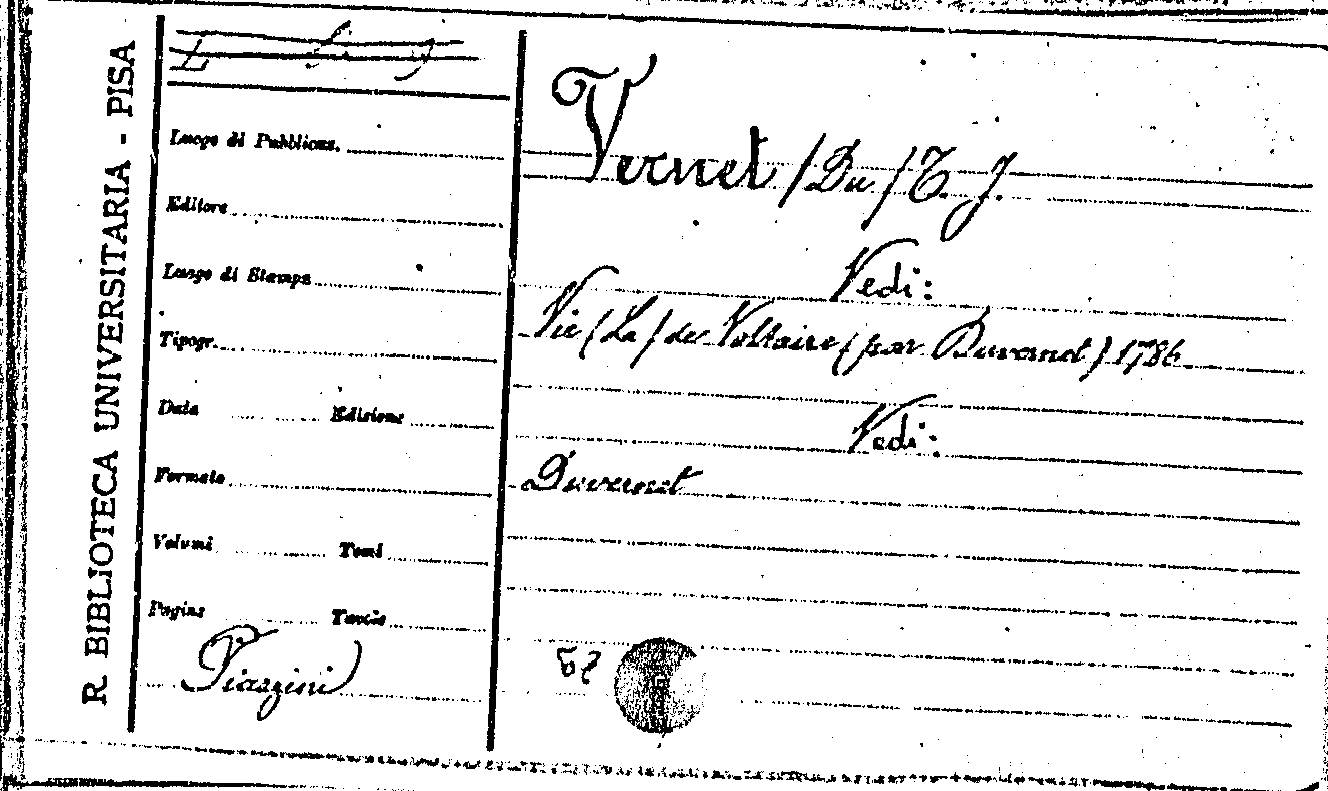 R. BIBLIOTECA UNIVERSITARIA - PISA
Luogo di Pubblicaz.
Editore
Luogo di Stampa
Tipogr.
Data Edizione
Formato
Volumi Tomi
Pagine Tavole
Piazzini
Vernet (Du) T. J.
Vedi:
Vie (La) de Voltaire (par Duvernet) 1786
Vedi:
Duvernet